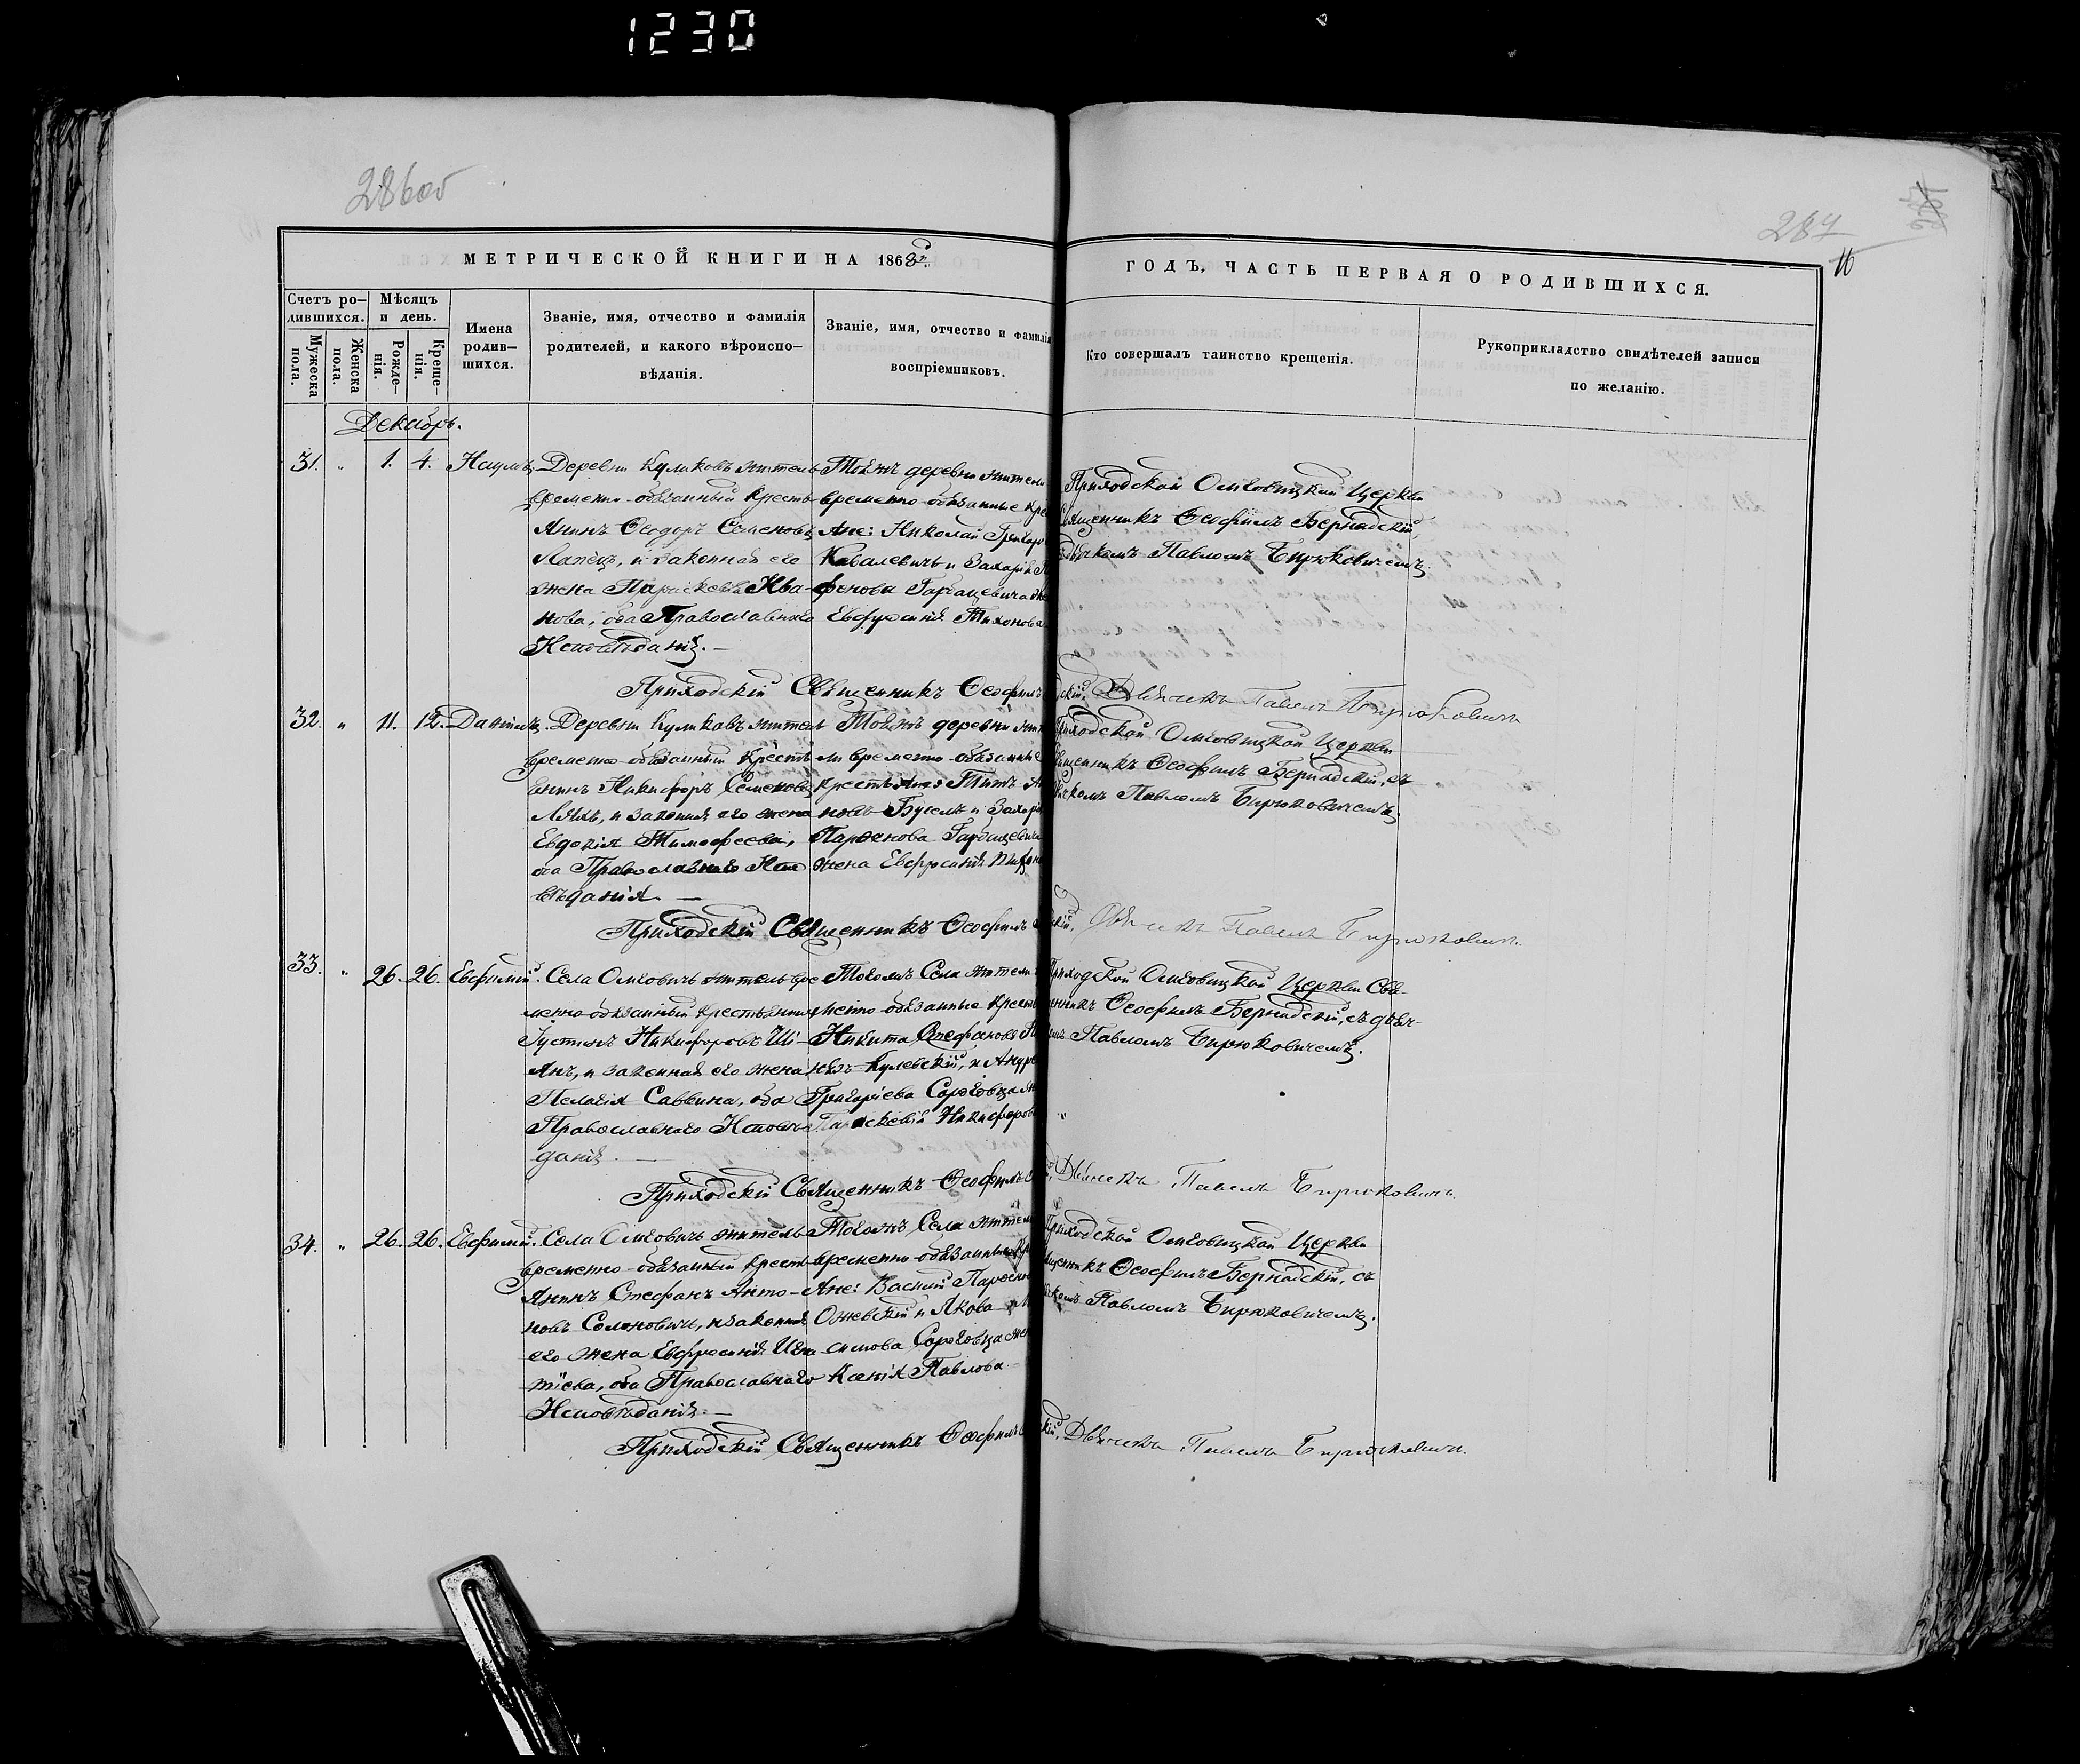 1230
286 об
287
16
МЕТРИЧЕСКОЙ КНИГИ НА 1863 г.
ГОДЪ, ЧАСТЬ ПЕРВАЯ О РОДИВШИХСЯ.
Счетъ ро-
дившихся.
Мужеска
пола.
Женска
пола.
Мѣсяцъ
и день.
Рожде-
нія.
Креще-
нія.
Имена
родив-
шихся.
Званіе, имя, отчество и фамилія
родителей, и какого вѣроиспо-
вѣданія.
Званіе, имя, отчество и фамилія
воспріемниковъ.
Кто совершалъ таинство крещенія.
Рукоприкладство свидѣтелей записи
по желанію.
Декабрь.
31. " 1. 4. Наумъ
Деревни Куликовъ житель
временно-обязанный кресть-
янинъ Ѳеодоръ Семеновъ
и законная его
жена Параскева Ива-
нова, оба Православнаго
Исповѣданія.—
Тойжъ деревни жители
временно-обязанные кре
яне: Николай Григор
Ковалевичъ и Захарія
фенова Гарбацевича же
Евфросинія Тихонова
Приходской Олговицкой Церкви
священникъ Ѳеофилъ Бернадскій,
дьячкомъ Павломъ Бирюковичемъ.
Приходскій Священникъ Ѳеофилъ
скій. Дьячекъ Павелъ Бирюковичъ
32. " 11. 12. Даніилъ
Деревни Куликовъ жител
временно-обязанный кресть
янинъ Никифоръ Семеновъ
Ляхъ, и законная его жена
Евдокія Тимофеева,
оба Православнаго Испо
вѣданія. —
Тойжъ деревни жит
ли временно-обязанные
крестьяне: Титъ
новъ Бусель и Захарі
Парфенова Гарбацевича
жена Евфросинія Тихон
Приходской Олговицкой Церкви
священникъ Ѳеофилъ Бернадскій, съ
дьячкомъ Павломъ Бирюковичемъ.
Приходскій Священникъ Ѳеофилъ
скій, Дьячекъ Павелъ Бирюковичъ.
33. " 26. 26. Евфимій.
Села Олговичъ житель вре
менно-обязанный крестьянинъ
Іустинъ Никифоровъ Ші-
янъ, и законная его жена
Пелагія Саввина, оба
Православнаго Исповѣ
данія. —
Тогожъ Села жители
менно-обязанные кресть
Никита Стефановъ
Кулевскій, и Андре
Григоріева Сороговца
Параскевія Никифоров
Приходской Олговицкой Церкви Свя-
щенникъ Ѳеофилъ Бернадскій, съ дьяч-
комъ Павломъ Бирюковичемъ.
Приходскій Священникъ Ѳеофилъ
Дьячекъ Павелъ Бирюковичъ.
34. " 26. 26. Евфимій.
Села Олговичъ житель
временно-обязанный кресть
янинъ Стефанъ Анто-
новъ Солоновичъ, и законная
его жена Евфросинія Игна
тіева, оба Православнаго
Исповѣданія.—
Тогожъ Села жители
временно-обязанные кр
яне: Василій Парфен
Ожевскій и Якова
симова Сороговца жен
Ксенія Павлова
Приходской Олговицкой Церкви
священникъ Ѳеофилъ Бернадскій, съ
дьячкомъ Павломъ Бирюковичемъ.
Приходскій Священникъ Ѳеофилъ
скій, Дьячекъ Павелъ Бирюковичъ.